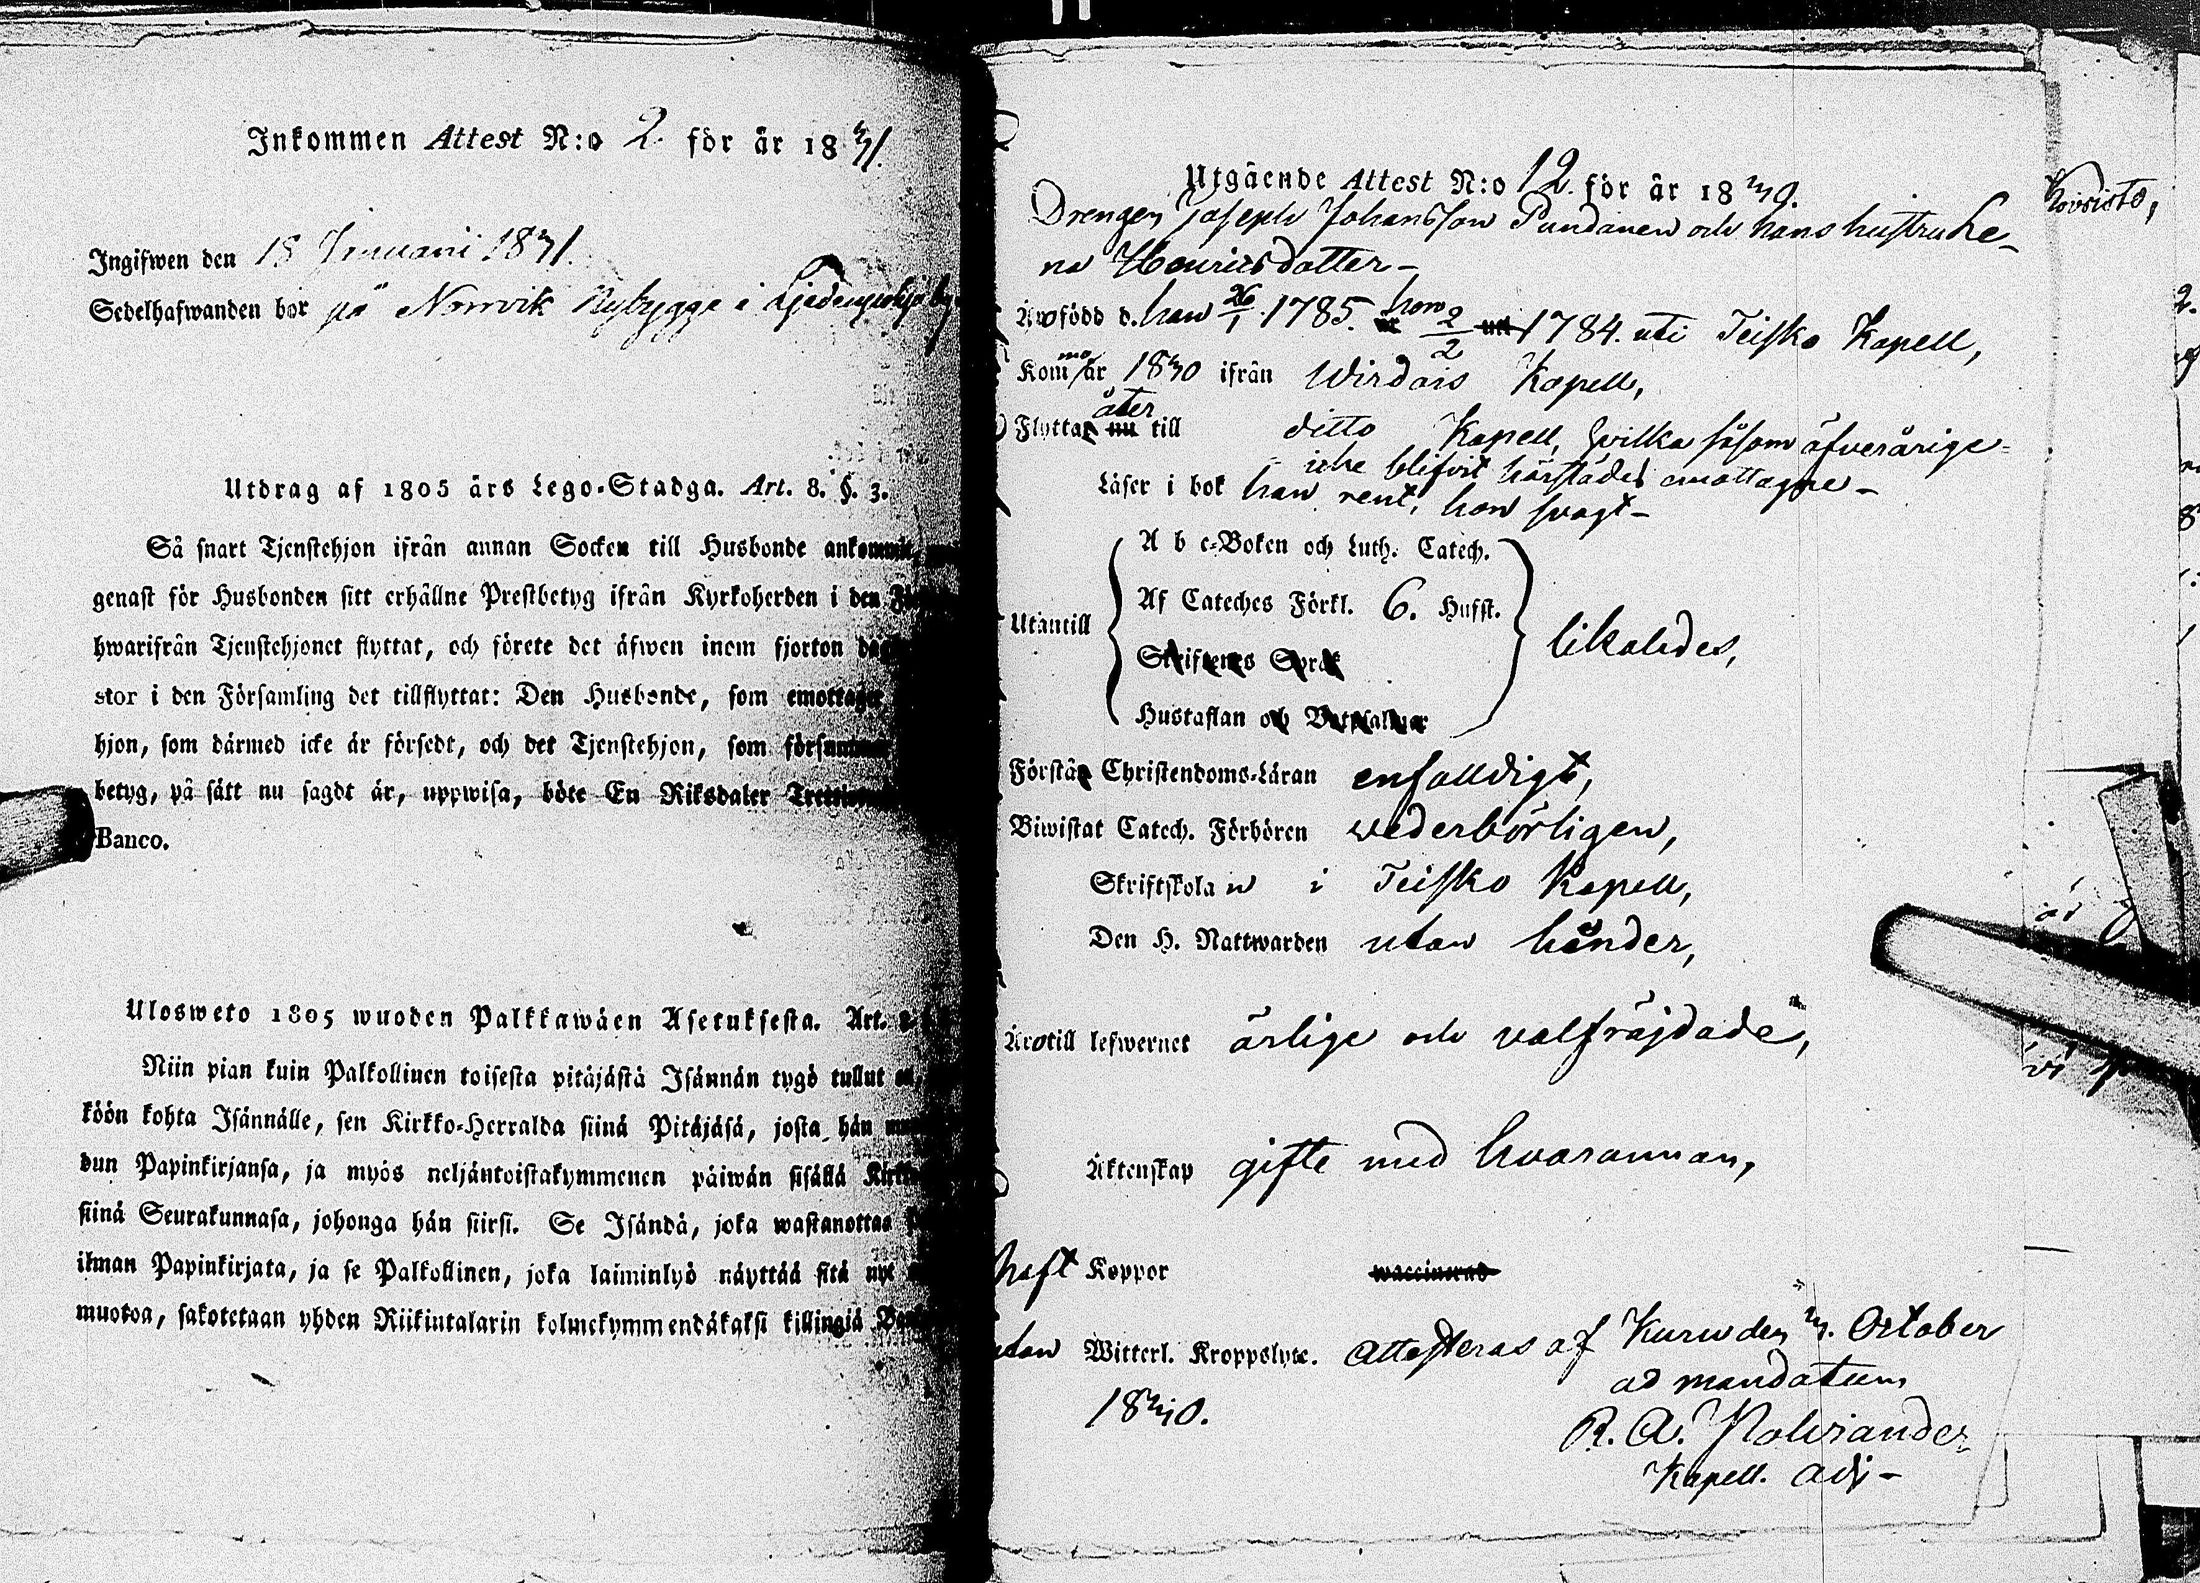 Inkommen Attest N:o 2. för år 1841.
Ingifwen den 18 Januarii 1841.
Sedelhafwanden bor på Norrvik Nybygge i
Utdrag af 1805 års Lego-Stadga. Art. 8. §. 3.
Så snart Tjenstehjon ifrån annan Socken till Husbonde ankommit,
genast för Husbonden sitt erhållne Prestbetyg ifrån Kyrkoherden i den
hwarifrån Tjenstehjonet flyttat, och förete det äfwen inom fjorton
stor i den Församling det tillflyttat: Den Husbonde, som emottager
hjon, som därmed icke är försedt, och det Tjenstehjon, som försummar
betyg, på sätt nu sagdt är, uppwisa, böte En Riksdaler
Banco.
Ulosweto 1805 wuoden Palkkawäen Asetuksesta. Art. 8.
Niin pian kuin Palkollinen toisesta pitäjästä Isännän tygö tullut on,
köön kohta Isännälle, sen Kirkko-Herralda siinä Pitäjäsä, josta hän
dun Papinkirjansa, ja myös neljäntoistakymmenen päiwän sisällä
siinä Seurakunnasa, johonga hän siirsi. Se Isändä, joka wastanottaa
ilman Papinkirjata, ja se Palkollinen, joka laiminlyö näyttää sitä nyt
muotoa, sakotetaan yhden Riikintalarin kolmekymmendäkaksi killingiä
Utgående Attest N:o 12. för år 1840.
Drengen Joseph Johansson Pundanen och hans hustru Le-
na Henricsdotter-
Äro född d. han 26/1 1785. hon 2/2 1784. uti Teisko Kapell,
Kommo år 1840 ifrån Wirdois Kapell,
Flytta åter nu till ditto Kapell, hvilka såsom äfverårige
icke blifvit härstädes emottagne-
Läser i bok han rent, hon svagt-
Utantill
A b c-Boken och Luth. Catech.
Af Cateches Förkl. 6. Hufst.
Skriftenes Språk
Hustaflan och Botpsalmer
likaledes,
Förstå Christendoms-Läran enfalldigt,
Biwistat Catech. Förhören vederbörligen,
Skriftskolan i Teisko Kapell,
Den H. Nattwarden utan hinder,
Äro till lefwernet ärlige och välfräjdade,
Äktenskap gifte med hvarannan,
haft Koppor waccinerad
utan Witterl. Kroppslyte. Attesteras af Kuru den 4. October
1840.
ad mandatum
R. A. Polviander
Kapell. Adj-
Koivisto,